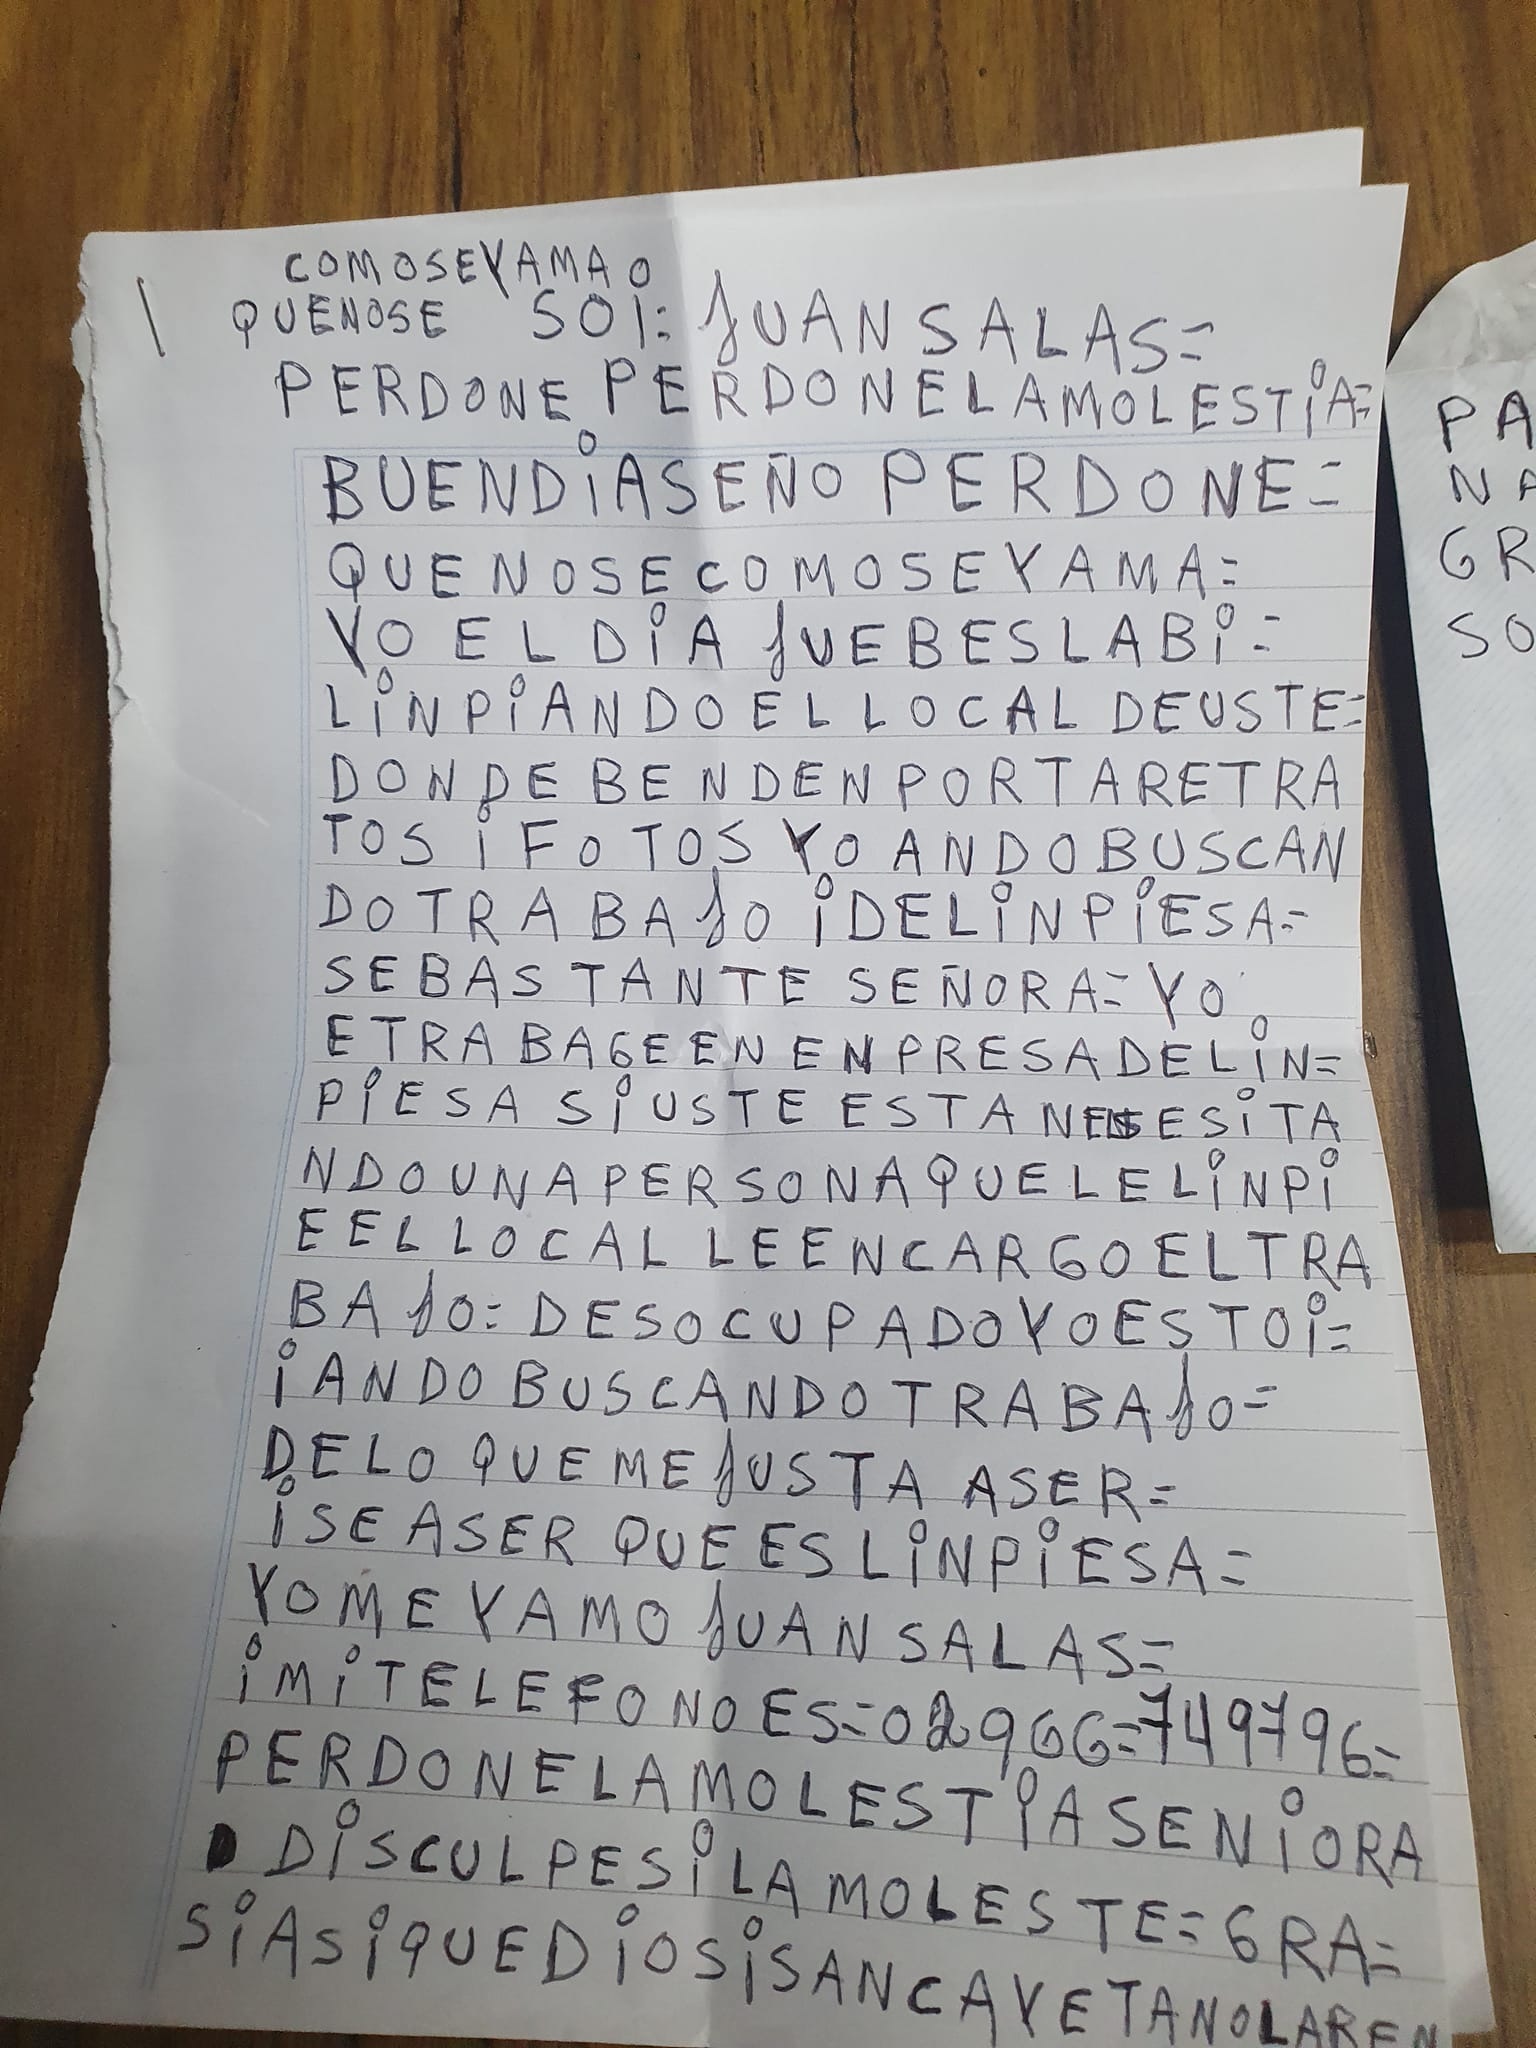 COMOSEYAMAO
QUENOSE SOi= JUANSALAS=
PERDONE PERDONELAMOLESTiA=
BUENDiASEÑO PERDONE=
QUENOSECOMOSEYAMA=
YO EL DiA JUEBESLABi=
LiNPiANDOELLOCAL DEUSTE=
DONDEBENDENPORTARETRA
TOS i FOTOS YO ANDOBUSCAN
DOTRABAJO iDELiNPiESA=
SEBASTANTE SEÑORA= YO
ETRABAGEENENPRESADELiN=
PiESA SiUSTE ESTANESESiTA
NDOUNAPERSONAQUELELiNPi
EELLOCAL LEENCARGOELTRA
BAJO= DESOCUPADOYOESTOi=
iANDOBUSCANDOTRABAJO=
DELO QUEMEJUSTA ASER=
iSEASER QUEESLiNPiESA=
YOMEYAMOJUANSALAS=
iMiTELEFONOES=02966=749796=
PERDONELAMOLESTiASENiORA
DiSCULPESiLAMOLESTE=GRA=
SiASiQUEDiOSiSANCAYETANOLAREN
PA
NA
GR
SO